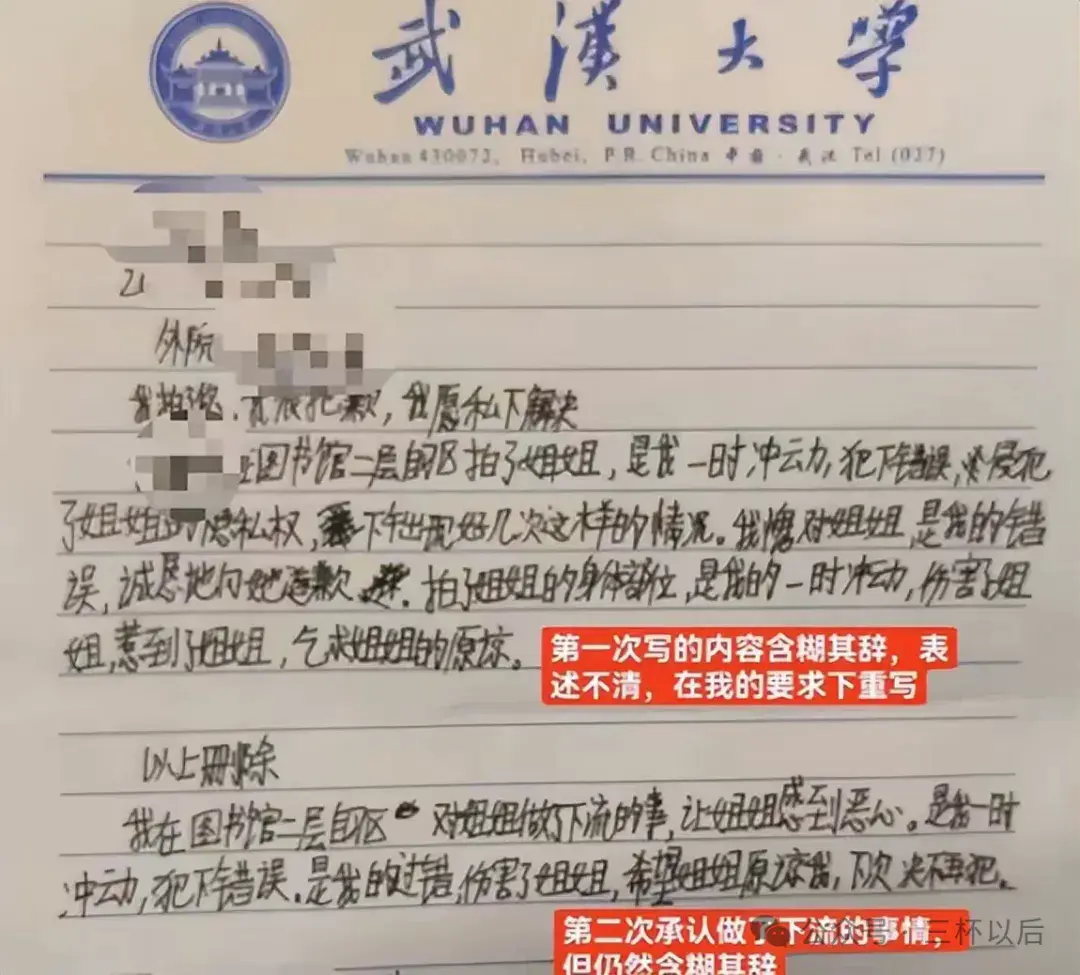 武漢大学
WUHAN UNIVERSITY
Wuhan 430072, Hubei, P.R. China 中国·武汉 Tel (027)
外院
道歉,我愿私下解决
图书馆二层自习区拍了姐姐,是我一时冲动,犯下错误,侵犯
了姐姐的隐私权,下午出现好几次这样的情况。我愧对姐姐,是我的错
误,诚恳地向她道歉。拍了姐姐的身体部位,是我的一时冲动,伤害了姐
姐,惹到了姐姐,乞求姐姐的原谅。
第一次写的内容含糊其辞,表
述不清,在我的要求下重写
以上删除
我在图书馆二层自区 对姐姐做了下流的事,让姐姐感到恶心。是我一时
冲动,犯下错误。是我的过错,伤害了姐姐,希望姐姐原谅我,下次决不再犯。
第二次承认做了下流的事情,
但仍然含糊其辞
公众号·三杯以后